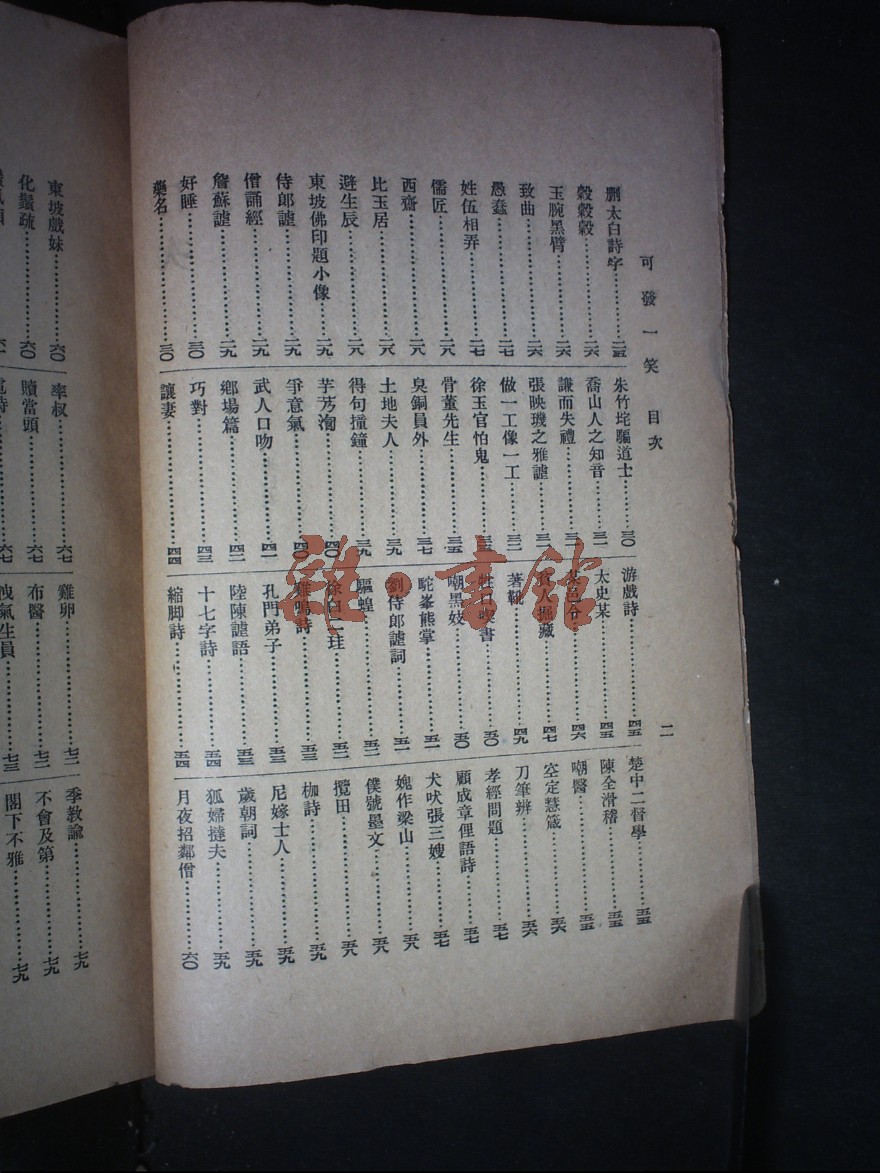 可發一笑 目次
二
刪太白詩字……………二五
穀穀穀……………二六
玉腕黑臂……………二六
致曲……………二六
愚蠢……………二七
姓伍相弄……………二七
儒匠……………二八
西齋……………二八
比玉居……………二八
避生辰……………二八
東坡佛印題小像……………二九
侍郎謔……………二九
僧誦經……………二九
詹蘇謔……………二九
好睡……………三〇
藥名……………三〇
朱竹垞騙道士……………三〇
喬山人之知音……………三一
謙而失禮……………三一
張映璣之雅謔……………三一
做一工像一工……………三二
徐玉官怕鬼……………三五
骨董先生……………三五
臭銅員外……………三七
土地夫人……………三九
得句撞鐘……………三九
芋艿淘……………四〇
爭意氣……………四〇
武人口吻……………四一
鄉場篇……………四二
巧對……………四三
讓妻……………四四
游戲詩……………四五
太史某……………四五
某邑令……………四六
貧人掘藏……………四七
著靴……………四九
牡丹吠書……………五〇
嘲黑妓……………五〇
駝峯熊掌……………五一
劉侍郎謔詞……………五一
驅蝗……………五二
徐曰二珪……………五二
雞鳴詩……………五三
孔門弟子……………五三
陸陳謔語……………五三
十七字詩……………五四
縮脚詩……………五四
楚中二督學……………五五
陳全滑稽……………五五
嘲醫……………五五
空定慧箴……………五六
刀筆辨……………五六
孝經問題……………五七
顧成章俚語詩……………五七
犬吠張三嫂……………五七
媿作梁山……………五八
僕號墨文……………五八
攬田……………五八
枷詩……………五九
尼嫁士人……………五九
歲朝詞……………五九
狐婦撻夫……………五九
月夜招鄰僧……………六〇
東坡戲妹……………六〇
化鬚疏……………六〇
率叔……………六七
贖當頭……………六七
雞卵……………七二
布醫……………七二
洩氣生員……………七三
季教諭……………七九
不會及第……………七九
閣下不雅……………七九
雜·書館